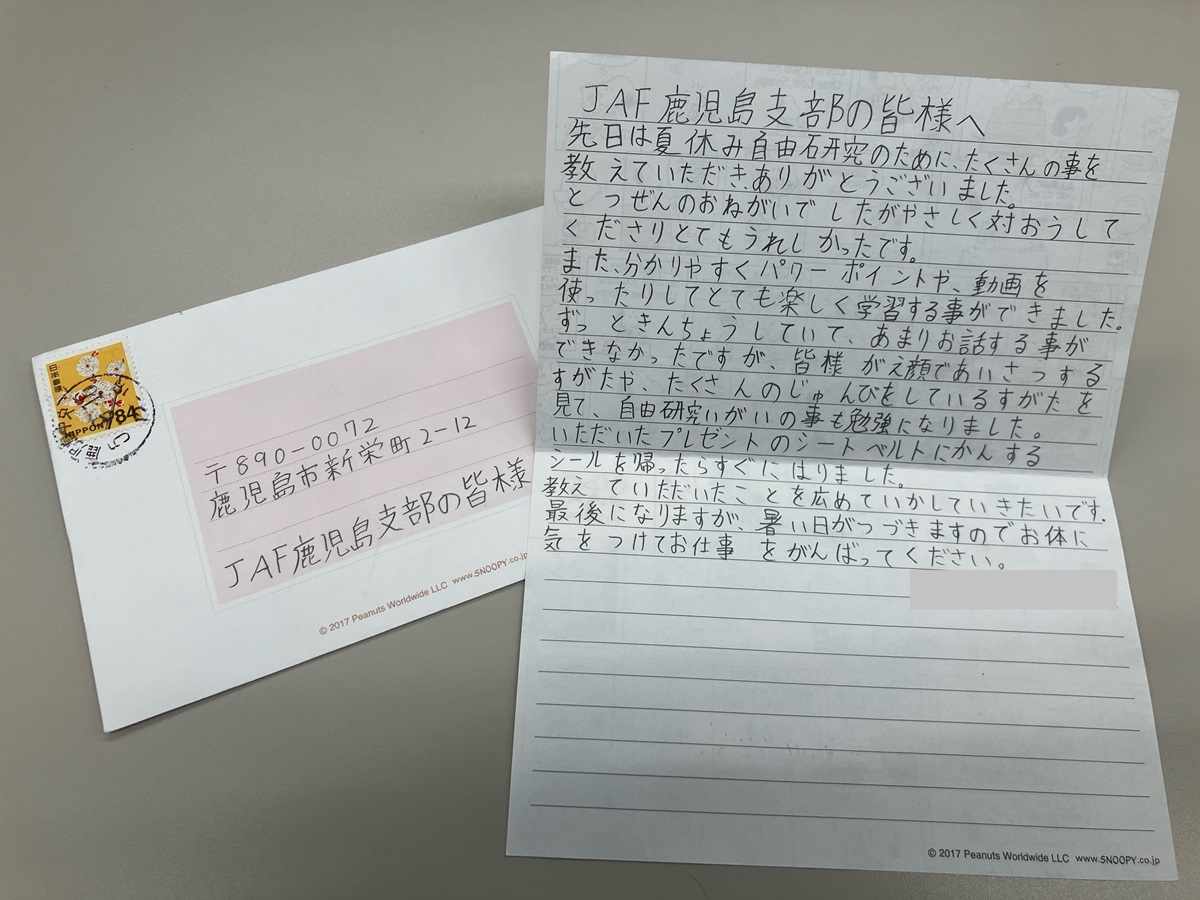 JAF鹿児島支部の皆様へ
先日は夏休み自由研究のために、たくさんの事を
教えていただき、ありがとうございました。
とつぜんのおねがいでしたがやさしく対おうして
くださりとてもうれしかったです。
また、分かりやすくパワーポイントや、動画を
使ったりしてとても楽しく学習する事ができました。
ずっときんちょうしていて、あまりお話する事が
できなかったですが、皆様がえ顔であいさつする
すがたや、たくさんのじゅんびをしているすがたを
見て、自由研究いがいの事も勉強になりました。
いただいたプレゼントのシートベルトにかんする
シールを帰ったらすぐにはりました。
教えていただいたことを広めていかしていきたいです.
最後になりますが、暑い日がつづきますのでお体に
気をつけてお仕事をがんばってください。
© 2017 Peanuts Worldwide LLC www.SNOOPY.co.jp
日本郵便
NIPPON 84
〒890-0072
鹿児島市新栄町2-12
JAF鹿児島支部の皆様
© 2017 Peanuts Worldwide LLC www.SNOOPY.co.jp